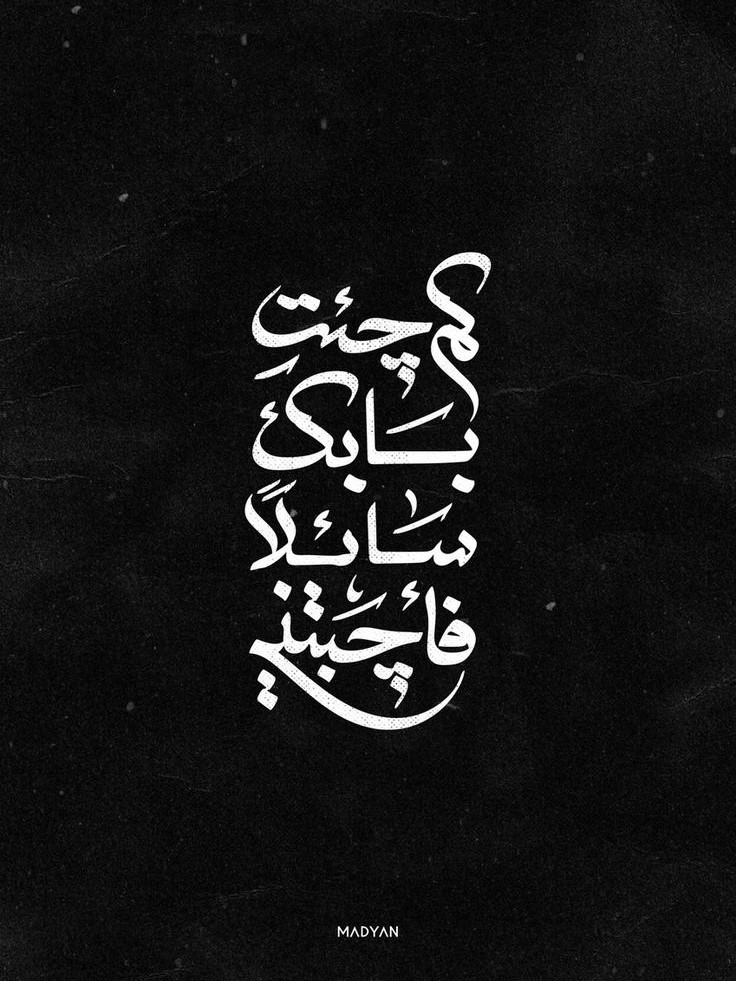 كم جئت
بابك
سائلاً
فأجبتني
MADYAN